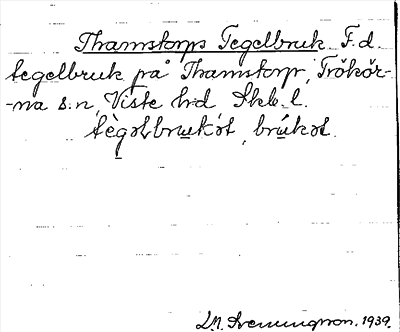 Thamstorps Tegelbruk F. d.
tegelbruk på Thamstorp, Trökör-
-na s:n, Viste hd Skb. l.
tègəlbrukət, brúkət.
1939.